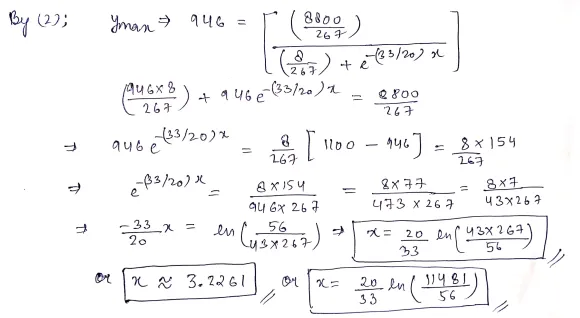 By (2); ymax ⇒ 946 = [ (8800/267) / ((8/267) + e^-(33/20)x) ]
(946×8/267) + 946 e^-(33/20)x = 8800/267
⇒ 946 e^-(33/20)x = 8/267 [1100 - 946] = 8×154/267
⇒ e^-(33/20)x = 8×154/946×267 = 8×77/473×267 = 8×7/43×267
⇒ -33/20 x = ln(56/43×267) ⇒ x = 20/33 ln(43×267/56)
or x ≈ 3.2261 or x = 20/33 ln(11481/56)